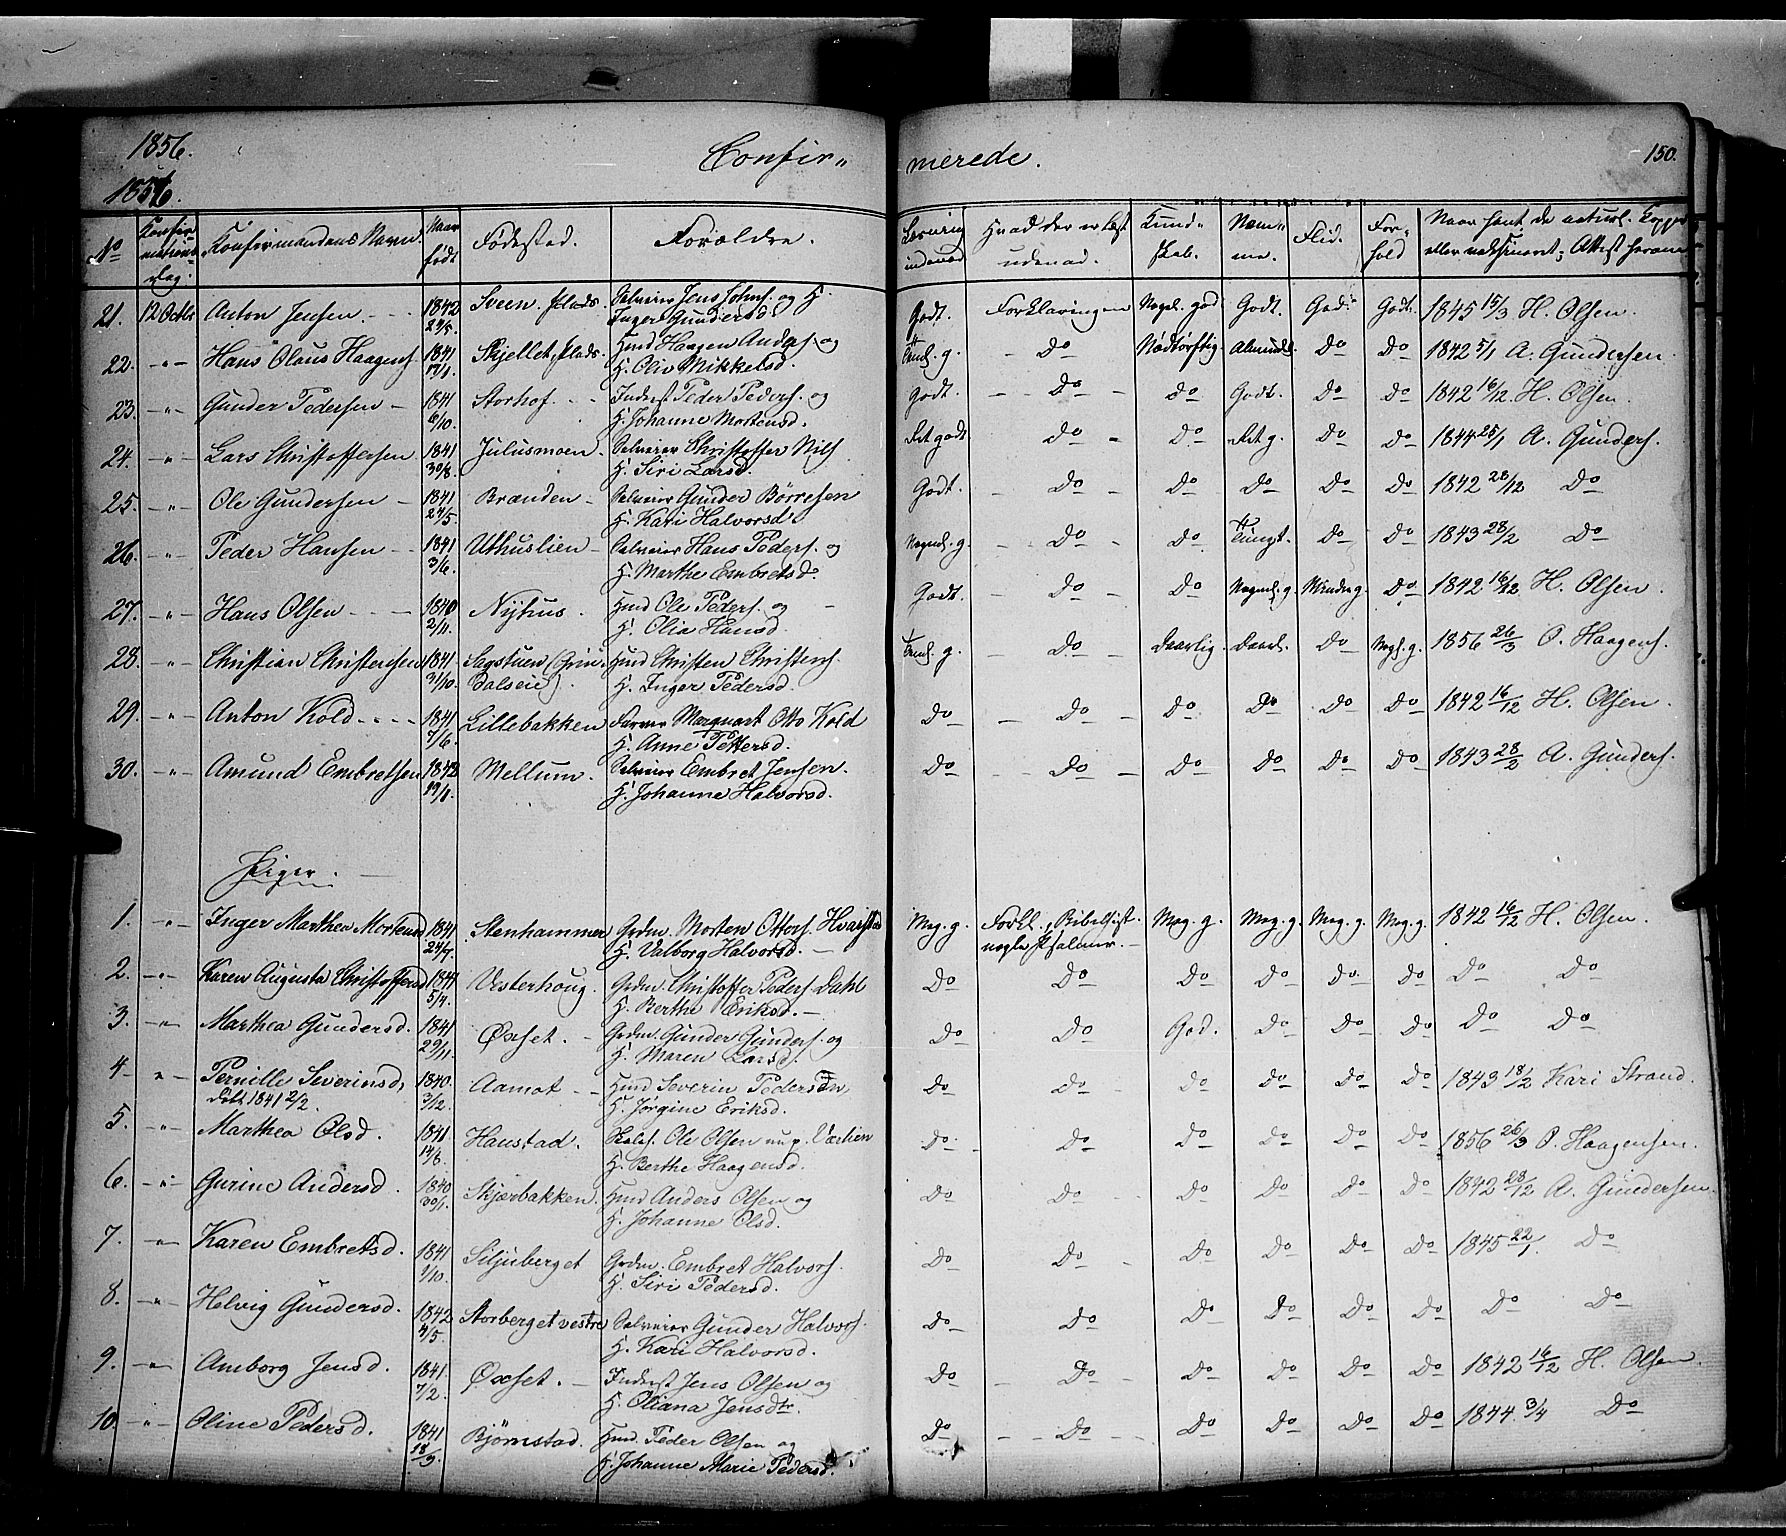 1856. Confir- merede. 150.
1856.
No Konfirmations Dag: Konfirmandens Navn. Naar født Fødested. Forældre. Læsning indenad Hvad der er læst udenad. Kundskab. Nemme. Flid. Forhold Naar havt de naturl. Kopper eller vaksineret; Attest herom
21. 12 Octbr Anton Jensen 1842 24/5. Sveen Plads. Selveier Jens Johns. og H. Inger Gundersd. Godt. Forklaringen Nogel. god Godt. God. Godt. 1845 15/3 H. Olsen.
22. -"- Hans Olaus Haagens. 1841 17/11. Skjellet Plads. Hmd Haagen Anders. og H. Oliv Mikkelsd. Teml. g. Do Nødtørftig. Almindl. Do Do 1842 5/1 A. Gundersen.
23. -"- Gunder Pedersen 1841 6/10. Storhof. Inderst Peder Peders. og H. Johanne Mortensd. Godt. Do Do Godt. Do Do 1842 16/12. H. Olsen.
24. -"- Lars Christoffersen 1841 30/8. Julusmoen. Selveier Christoffer Nils. H. Siri Larsd. Ret godt Do Do Ret g. Do Do 1844 25/1 A. Gunders.
25. -"- Ole Gundersen 1841 24/5. Brænden Selveier Gunder Børresen H. Kari Halvorsd. Godt. Do Do Do Do Do 1842 28/12 Do
26. -"- Peder Hansen 1841 3/6. Uthuslien Selveier Hans Peders. og H. Marthe Embretsd. Nogenl. g. Do Do Tungt. Do Do 1843 28/2 Do
27. -"- Hans Olsen 1840 2/11. Nyhus Hmd Ole Peders. og H. Olia Hansd. Godt. Do Do Nogenl. g. Mindre g. Do 1842 16/12 H. Olsen.
28. -"- Christian Christensen 1841 31/10. Sagstuen (Grindalseie). Hmd Christen Christens. H. Inger Pedersd. Teml. g. Do Daarlig. Daarl. Do Nogl. g. 1856 26/3 O. Haagens.
29. -"- Anton Kold 1841 7/6. Lillebakken Farver Marquart Otto Kold H. Anne Pettersd. Do Do Do Do Do Do 1842 16/12 H. Olsen.
30. -"- Amund Embretsen 1842 19/1. Mellum. Selveier Embret Jensen. H. Johanne Halvorsd. Do Do Do Do Do Do 1843 28/2 A. Gunders.
Piger.
1. -"- Inger Marthea Mortensd 1841 24/7. Stenhammer Grdm. Morten Ottos. Hvarstad H. Valborg Halvorsd. Meg. g. Forkl., Bibelhist. nogle Psalmer. Meg. g. Meg. g. Meg. g. Meg. g. 1842 16/12 H. Olsen.
2. -"- Karen Augusta Christoffersd 1841 5/4. Vesterhoug. Grdm. Christoffer Peders. Dahl H. Berthe Eriksd. Do Do Do Do Do Do Do Do
3. -"- Marthea Gundersd. 1841 29/11. Øxset. Grdm. Gunder Gunders. og H. Maren Larsd. Do Do God. Do Do Do Do Do
4. -"- Pernille Severinsd, Døbt 1841 2/2. 1840. 3/12. Aamot Hmd Severin Pedersen, H. Jørgine Eriksd. Do Do Do Do Do Do 1843 18/2 Kari Strand.
5. -"- Marthea Olsd. 1841. 14/8. Hanstad. Skolel. Ole Olsen H. Berthe Haagensd. Do Do Do Do Do Do 1856 26/3 O. Haagensen.
6. -"- Gurine Andersd. 1840 30/1. Skjærbakken. Hmd Anders Olsen og H. Johanne Olsd. Do Do Do Do Do Do 1842 28/12 A. Gundersen.
7. -"- Karen Embretsd. 1841 9/10. Siljuberget Grdm. Embret Halvors. H. Siri Pedersd. Do Do Do Do Do Do 1845 22/1. Do
8. -"- Helvig Gundersd. 1842 4/5. Storberget vestre Selveier Gunder Halvors. H. Kari Halvorsd. Do Do Do Do Do Do Do Do
9. -"- Amborg Jensd. 1841. 7/2. Øxset. Inderst Jens Olsen og H. Oliana Jensdtr. Do Do Do Do Do Do 1842 16/12 H. Olsen.
10. -"- Oline Pedersd. 1841 18/9. Bjørnstad. Hmd. Peder Olsen og H. Johanne Marie Pedersd. Do Do Do Do Do Do 1844 3/4 Do